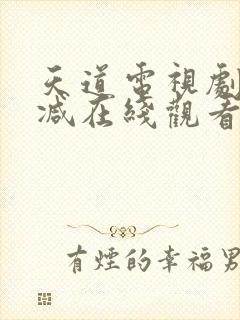 天道電視劇
減在綫觀看
有煙的幸福男